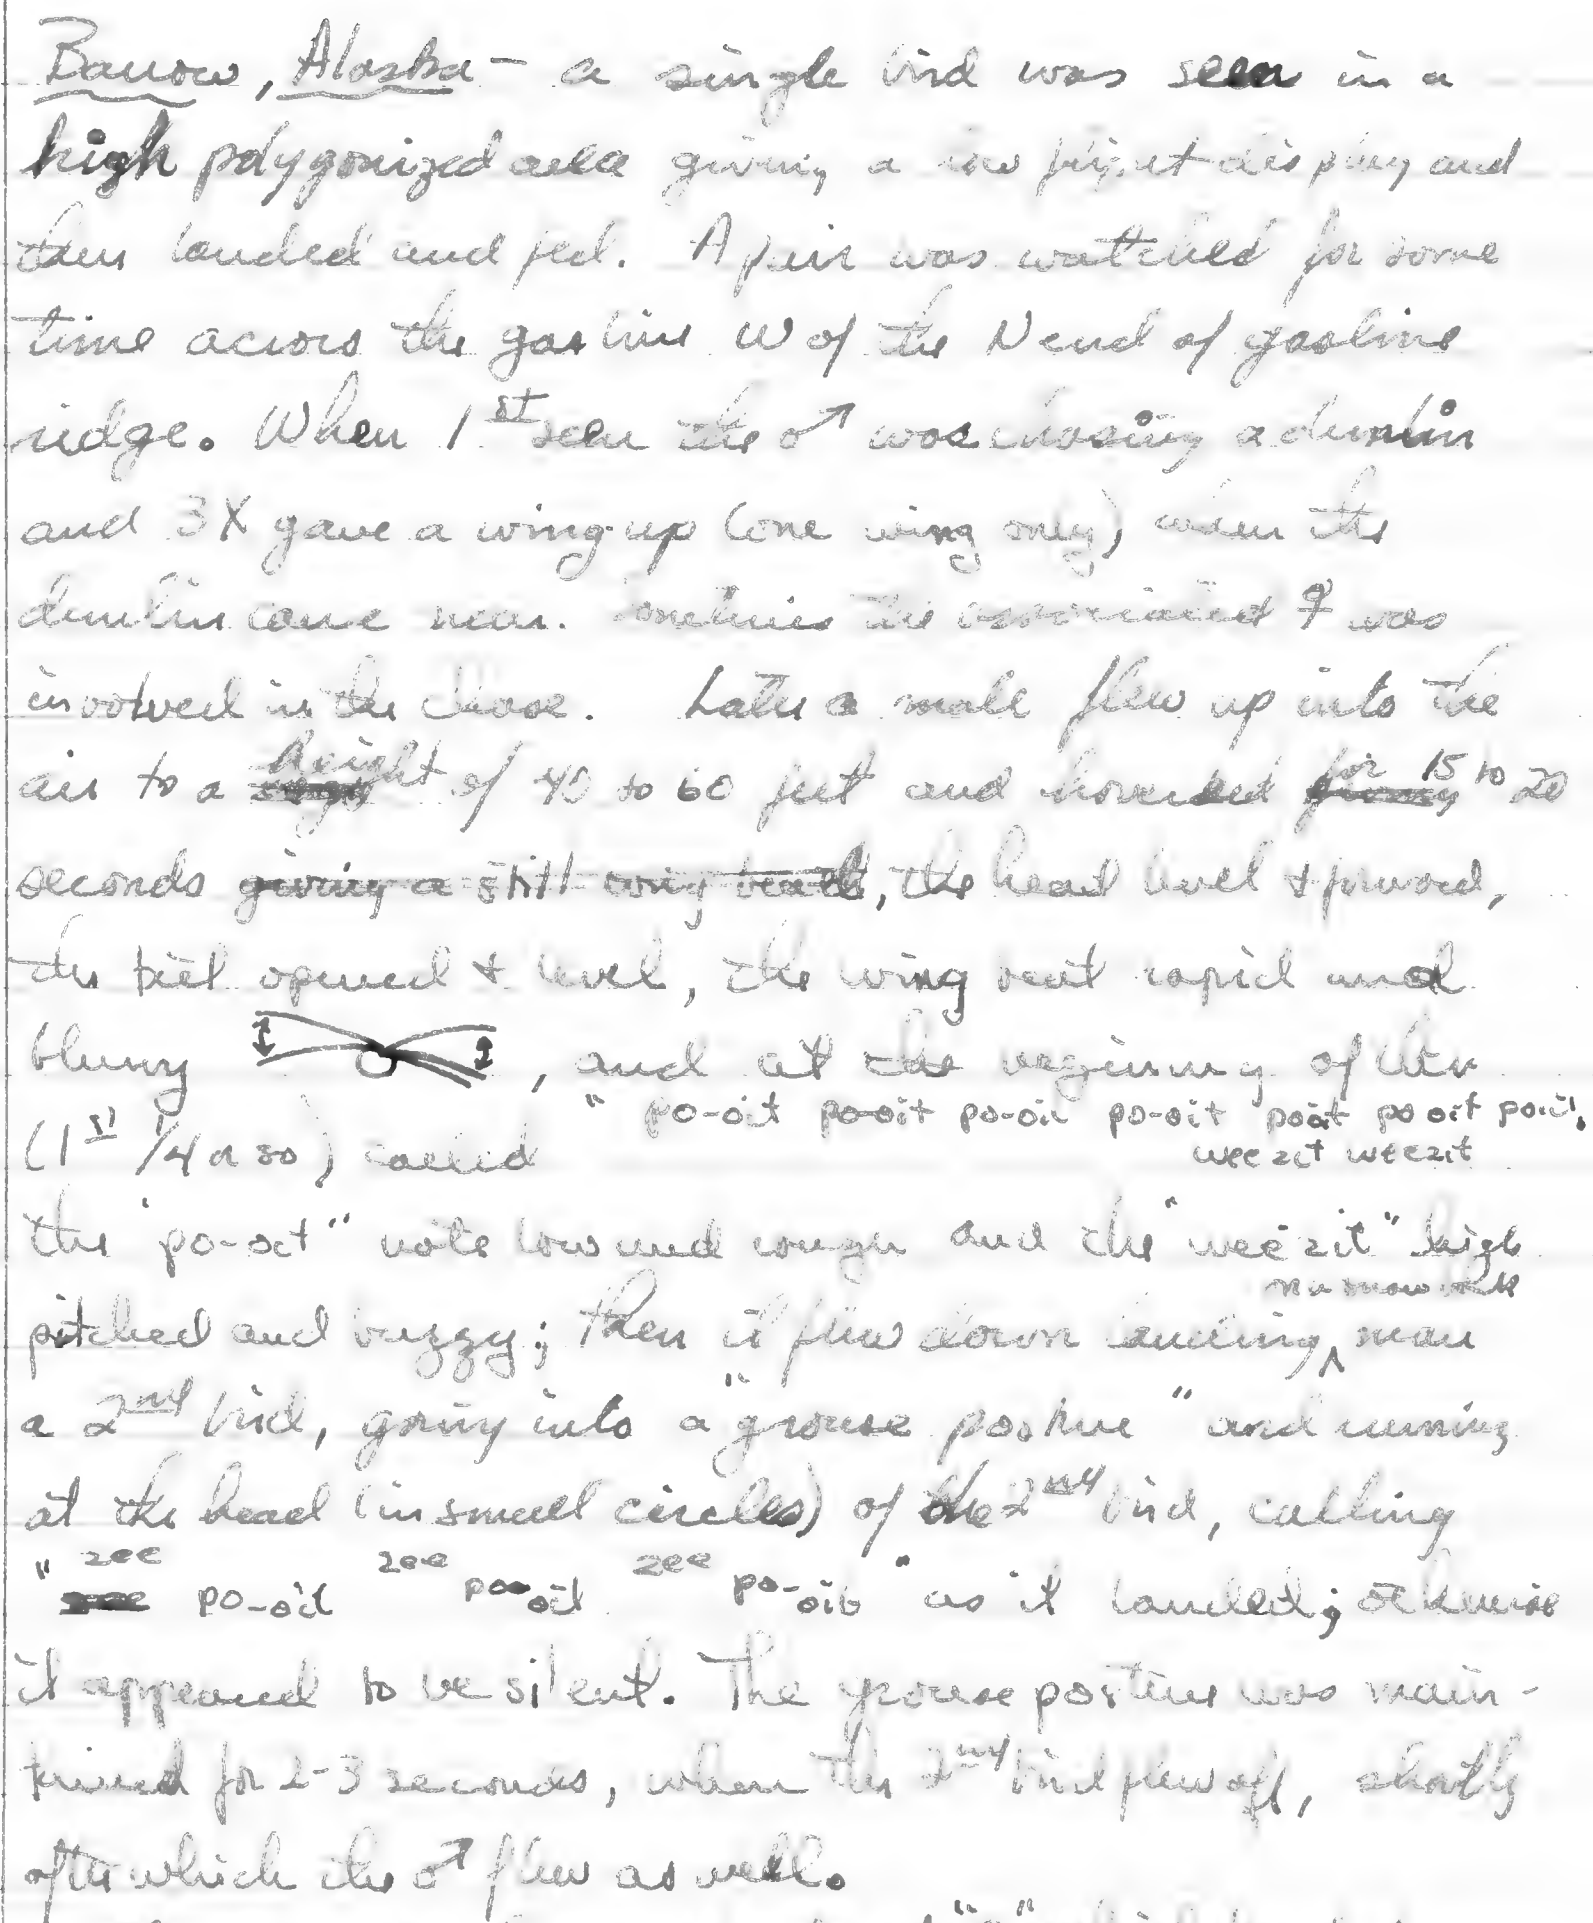 Barrow, Alaska - a single bird was seen in a
high polygonized area giving a low flight display and
then landed and fed. A pair was watched for some
time across the gas line W of the N end of gasline
ridge. When 1st seen the ♂ was chasing a dunlin
and 3X gave a wing-up (one wing only) when the
dunlin came near. Sometimes the associated ♀ was
involved in the chase. Later a male flew up into the
air to a height of 40 to 60 feet and hovered for 15 to 20
seconds giving a still wing beats, the head level & forward,
the tail opened & level, the wing beat rapid and
blurry , and at the beginning of
(1st 1/4 or so) called " po-oit po-oit po-oit po-oit poit po oit poit,
weezit weezit
the "po-oit" note low and rough and the "weezit" high
on snow
pitched and buzzy; then it flew down landing ^ near
a 2nd bird, going into a "grouse posture" and running
at the head (in small circles) of the 2nd bird, calling
" zee po-oit zee po-oit zee po-oit " as it landed; otherwise
it appeared to be silent. The grouse posture was main-
tained for 2-3 seconds, when the 2nd bird flew off, shortly
after which the ♂ flew as well.